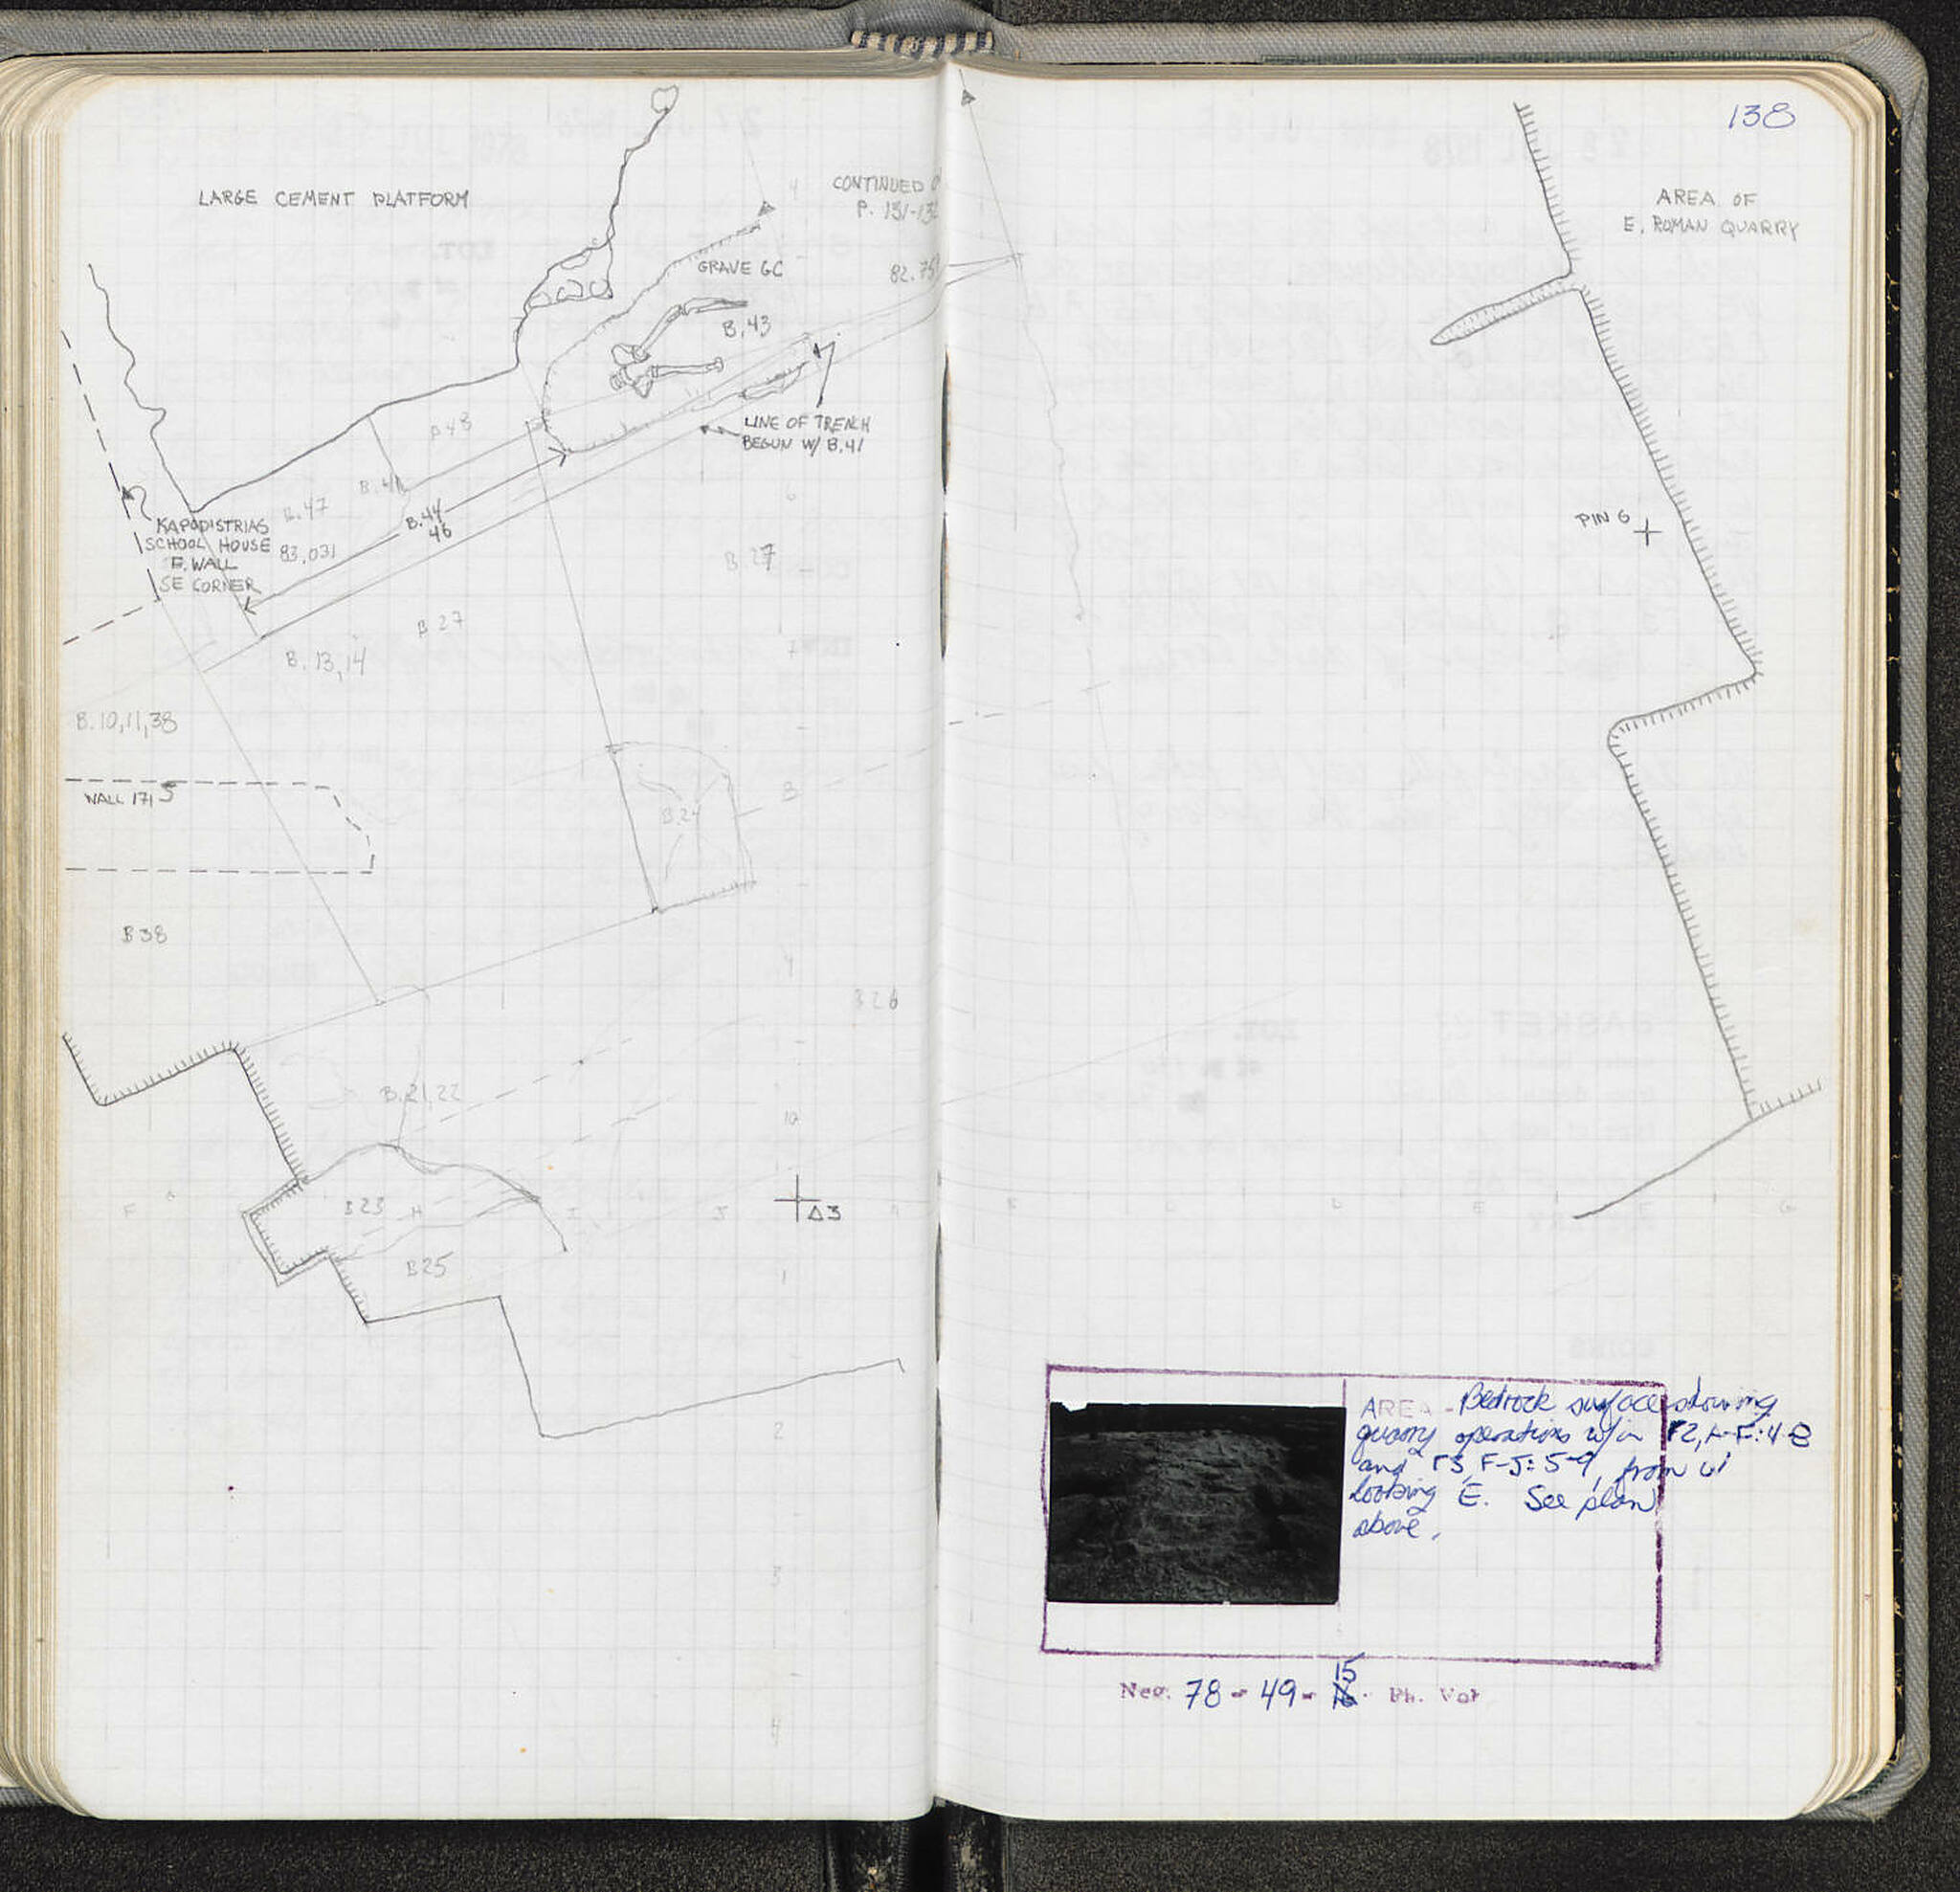 138
LARGE CEMENT PLATFORM
CONTINUED
P. 131-132
GRAVE GC
82.75
B.43
LINE OF TRENCH
BEGUN W/ B.41
B.47
B.44
46
KAPODISTRIAS
SCHOOL HOUSE
E. WALL
SE CORNER
83,031
B.27
B 27
B. 13,14
B. 10,11,38
WALL 171 5
B38
B 26
B.21,22
B23
H
I
J
B25
Δ3
F
4
6
7
8
10
1
2
3
4
AREA OF
E. ROMAN QUARRY
PIN 6
AREA - Bedrock surface showing
quarry operations w/in Γ2, A-F:4-8
and Γ3, F-J:5-9, from W
looking E. See plan
above.
Neg. 78 - 49 - 15 Ph. Vol